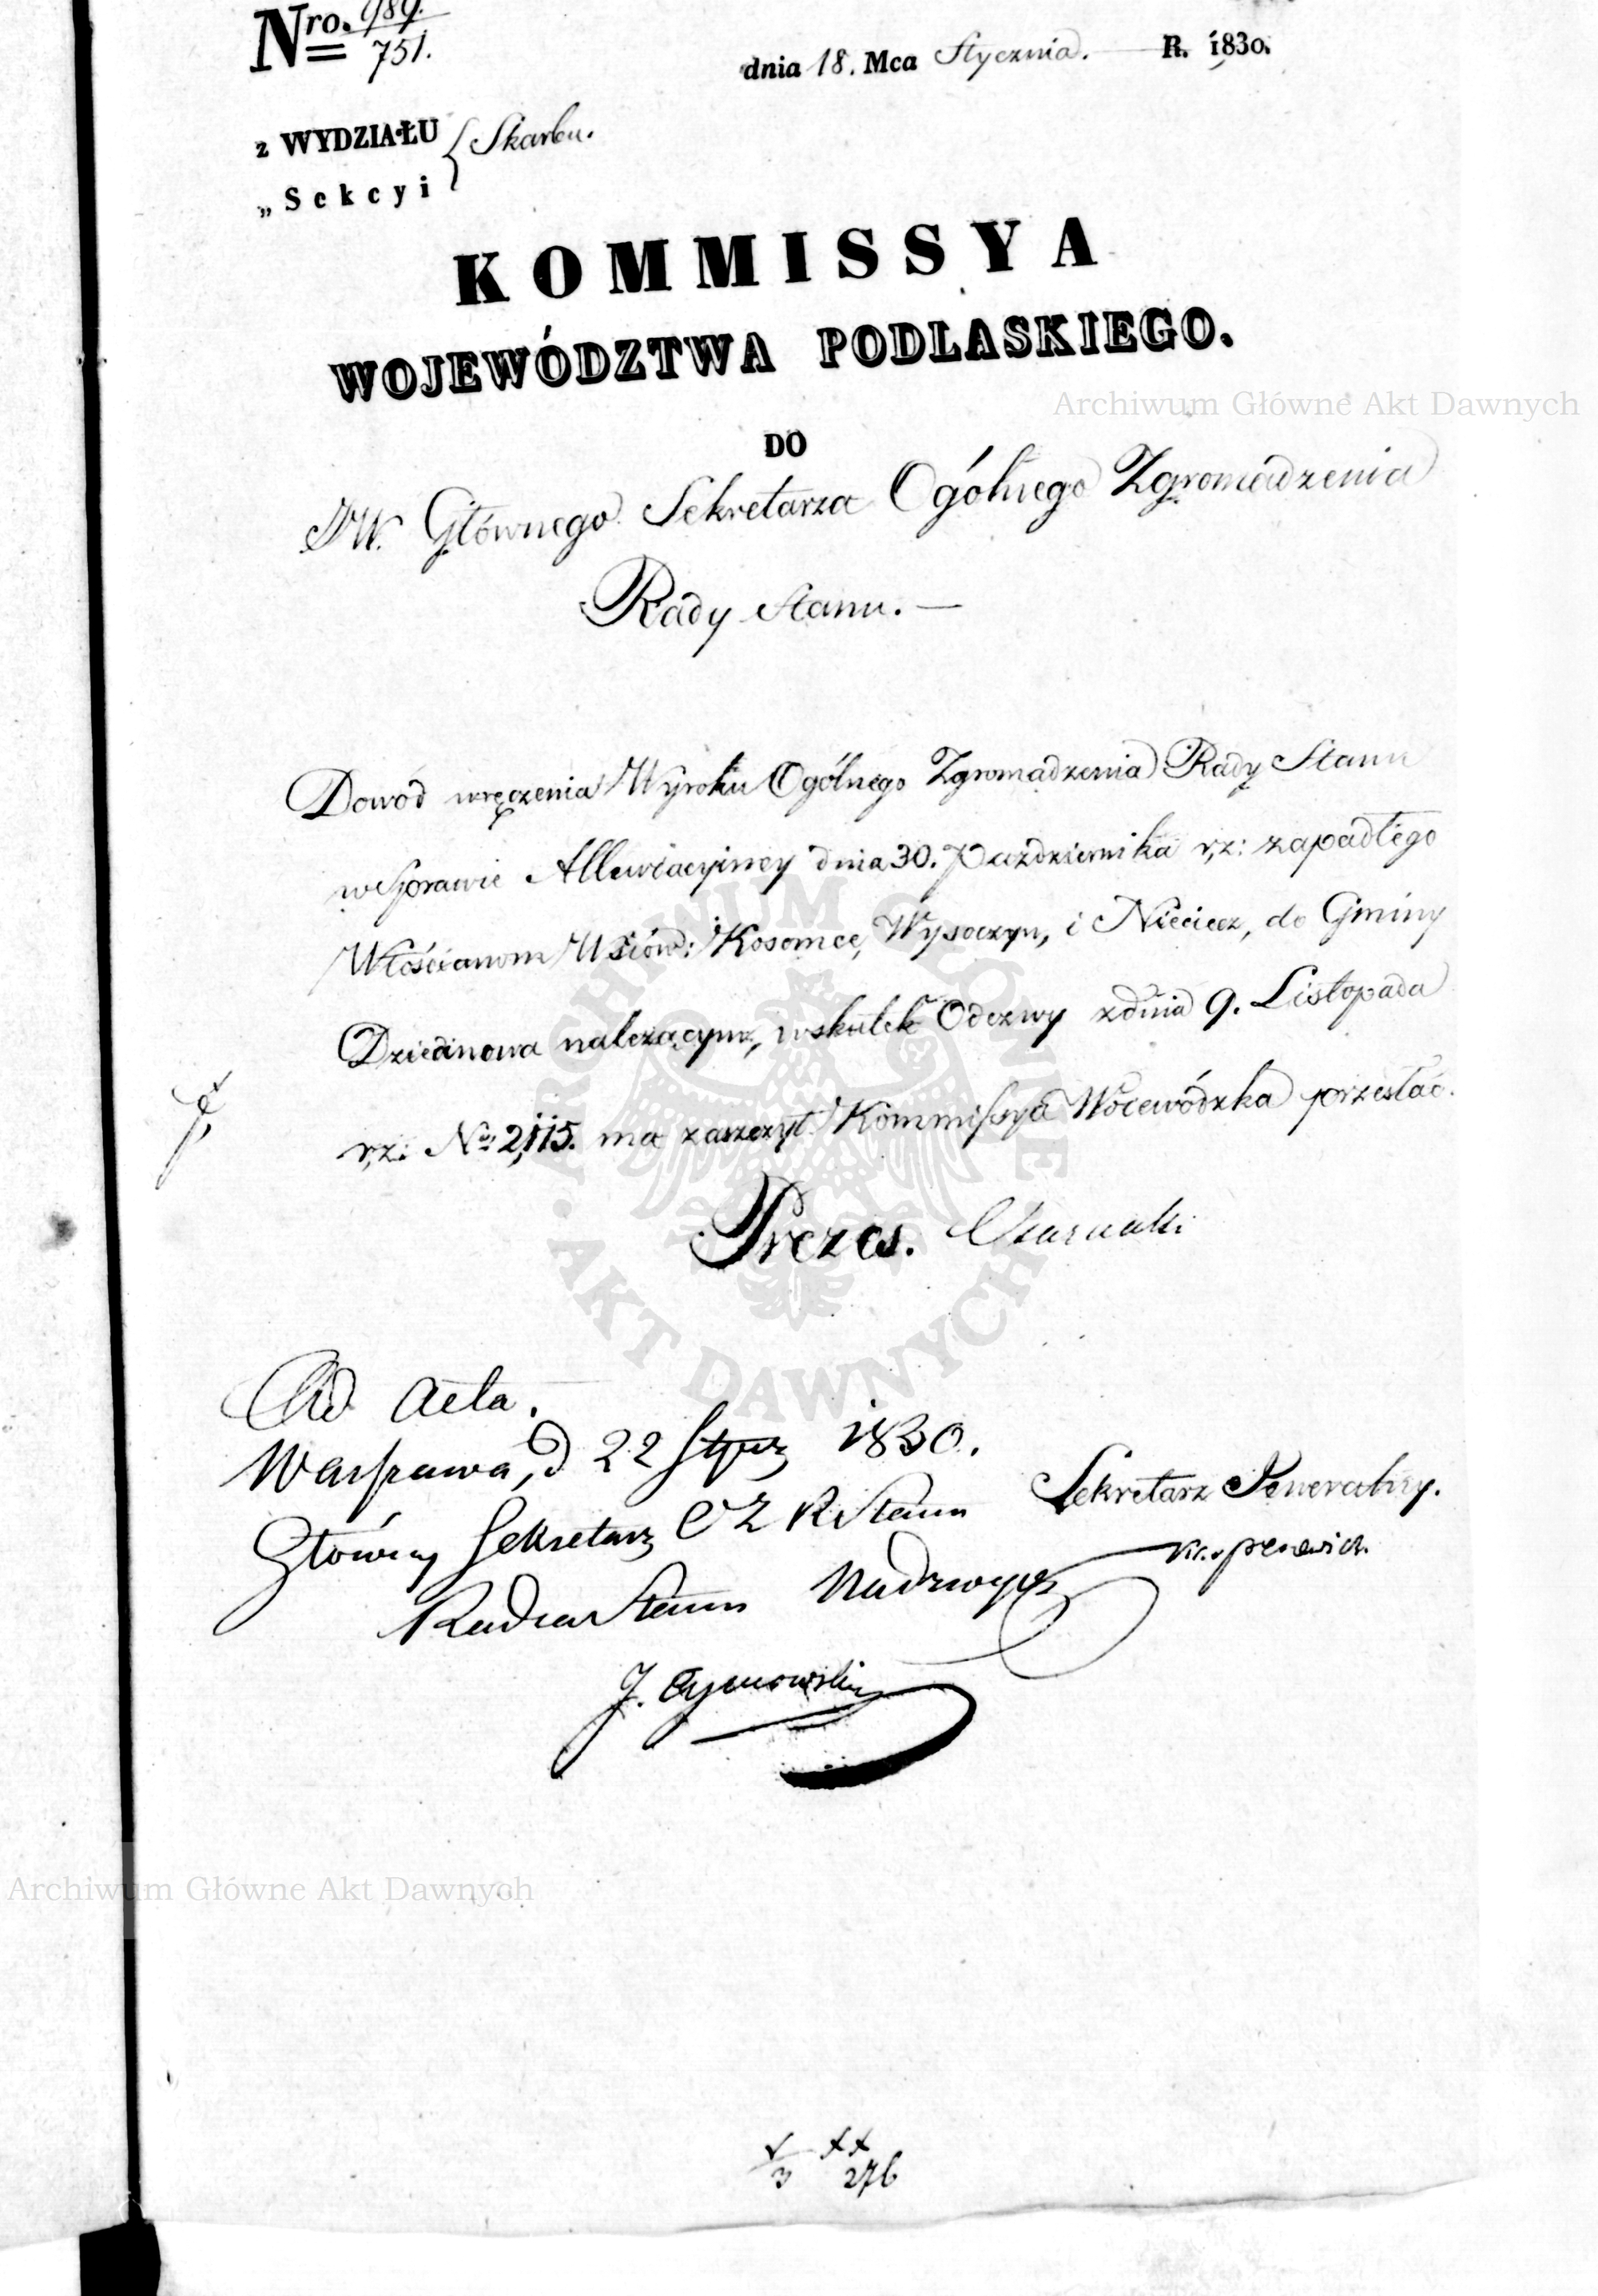 Nro. 989.
751.
dnia 18. Mca Stycznia. R. 1830.
z WYDZIAŁU
Skarbu.
„ Sekcyi
KOMMISSYA
WOJEWÓDZTWA PODLASKIEGO.
Archiwum Główne Akt Dawnych
DO
JW. Głównego Sekretarza Ogólnego Zgromadzenia
Rady Stanu. —
Dowód wręczenia Wyroku Ogólnego Zgromadzenia Rady Stanu
w Sprawie Allewiacyjney dnia 30. Pazdziernika r,z: zapadłego
Włościanom Wsiów: Kosomce, Wysoczyn, i Nieciecz, do Gminy
Dziecinowa należącym, wskutek Odezwy zdnia 9. Listopada
r,z: No 2,115. ma zaszczyt Kommissya Wojewódzka przesłać.
Prezes. Czarnecki
Ad Acta.
Warszawa, d 22 Stycz 1830.
Główny Sekretarz O Z R Stanu
Sekretarz Jeneralny.
Radca Stanu Nadzwycz
J. Tymowski
ARCHIWUM GŁÓWNE
AKT DAWNYCH
Archiwum Główne Akt Dawnych
3 276